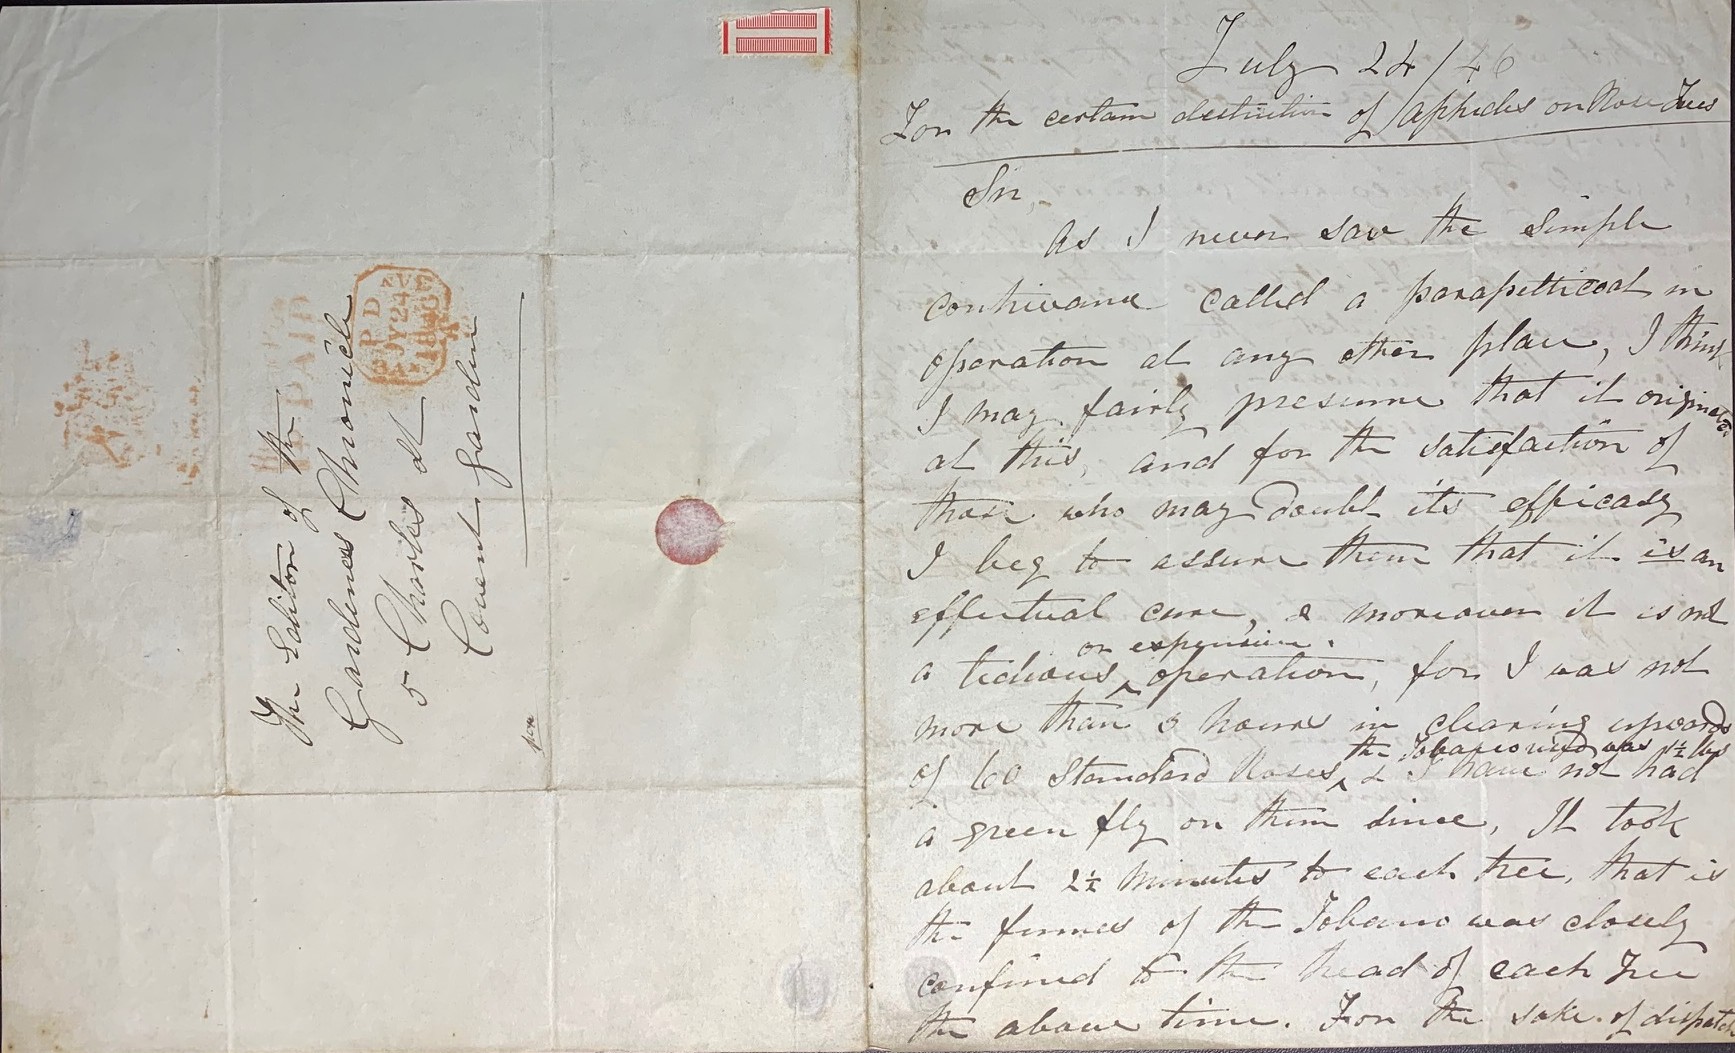 The Editor of the
Gardeners Chronicle
5 Charles St
Covent Garden
PAID
July 24/46
For the certain destruction of Aphides on Rose Trees
Sir,
As I never saw the simple
contrivance called a parapetticoat in
operation at any other place, I think
I may fairly presume that it originated
at this, and for the satisfaction of
those who may doubt its efficacy
I beg to assure them that it is an
effectual cure, & moreover it is not
or expensive
a tedious operation, for I was not
more than 3 hours in clearing upwards
the Tobacco used was 1½ lbs
of 60 Standard Roses, & I have not had
a green fly on them since, It took
about 2½ minutes to each tree, that is
the fumes of the Tobacco was closely
confined to the head of each Tree
the above time. For the sake of dispatch